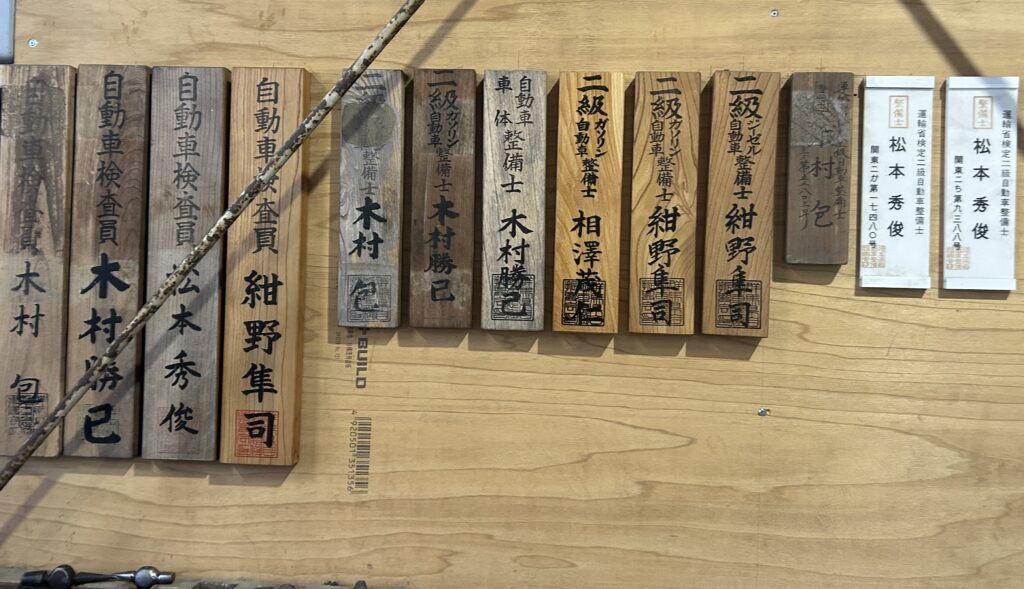 自動車検査員 木村 包
自動車検査員 木村勝己
自動車検査員 松本秀俊
自動車検査員 紺野隼司
二 整備士 木村 包
二級ガソリン自動車整備士 木村勝己
自動車車体整備士 木村勝己
二級ガソリン自動車整備士 相澤茂仁
二級ガソリン自動車整備士 紺野隼司
二級ジーゼル自動車整備士 紺野隼司
村 包
運輸省検定二級自動車整備士
整備士 松本秀俊
関東二が第一七四八〇号
運輸省検定二級自動車整備士
整備士 松本秀俊
関東二ち第九三八八号
BUILD
4 920501 351356